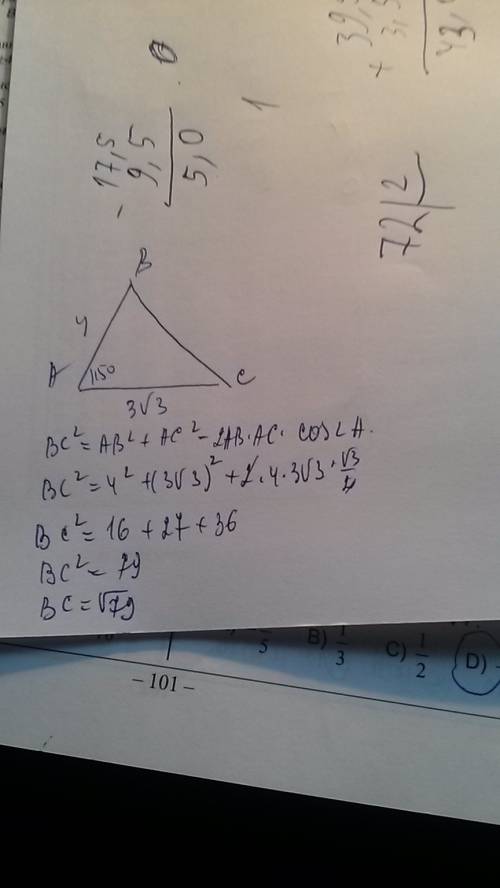 - 17,5
9,5
5,0
0
1
+ 39,
3,5
43,
72|2
B
4
A
150
C
3√3
BC²=AB²+AC²-2AB·AC·cos∠A.
BC²=4²+(3√3)²+2·4·3√3·√3/2
BC²=16+27+36
BC²=79
BC=√79
5
B) 1/3
C) 1/2
D)
–101–